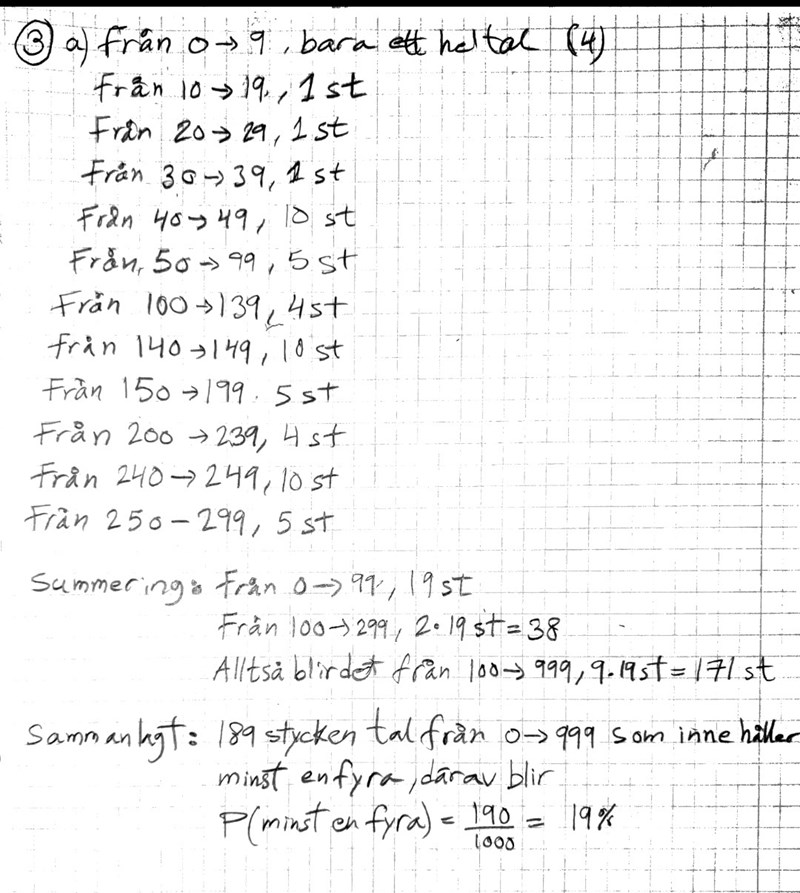 ③ a) Från 0→9, bara ett heltal (4)
Från 10→19, 1 st
Från 20→29, 1 st
Från 30→39, 1 st
Från 40→49, 10 st
Från, 50→99, 5 st
Från 100→139, 4 st
från 140→149, 10 st
Från 150→199. 5 st
Från 200→239, 4 st
Från 240→249, 10 st
Från 250-299, 5 st
Summering: Från 0→99, 19 st
Från 100→299, 2·19 st = 38
Alltså blir det från 100→999, 9·19 st = 171 st
Sammanlagt: 189 stycken tal från 0→999 som innehåller
minst en fyra, därav blir
P(minst en fyra) = 190/1000 = 19%